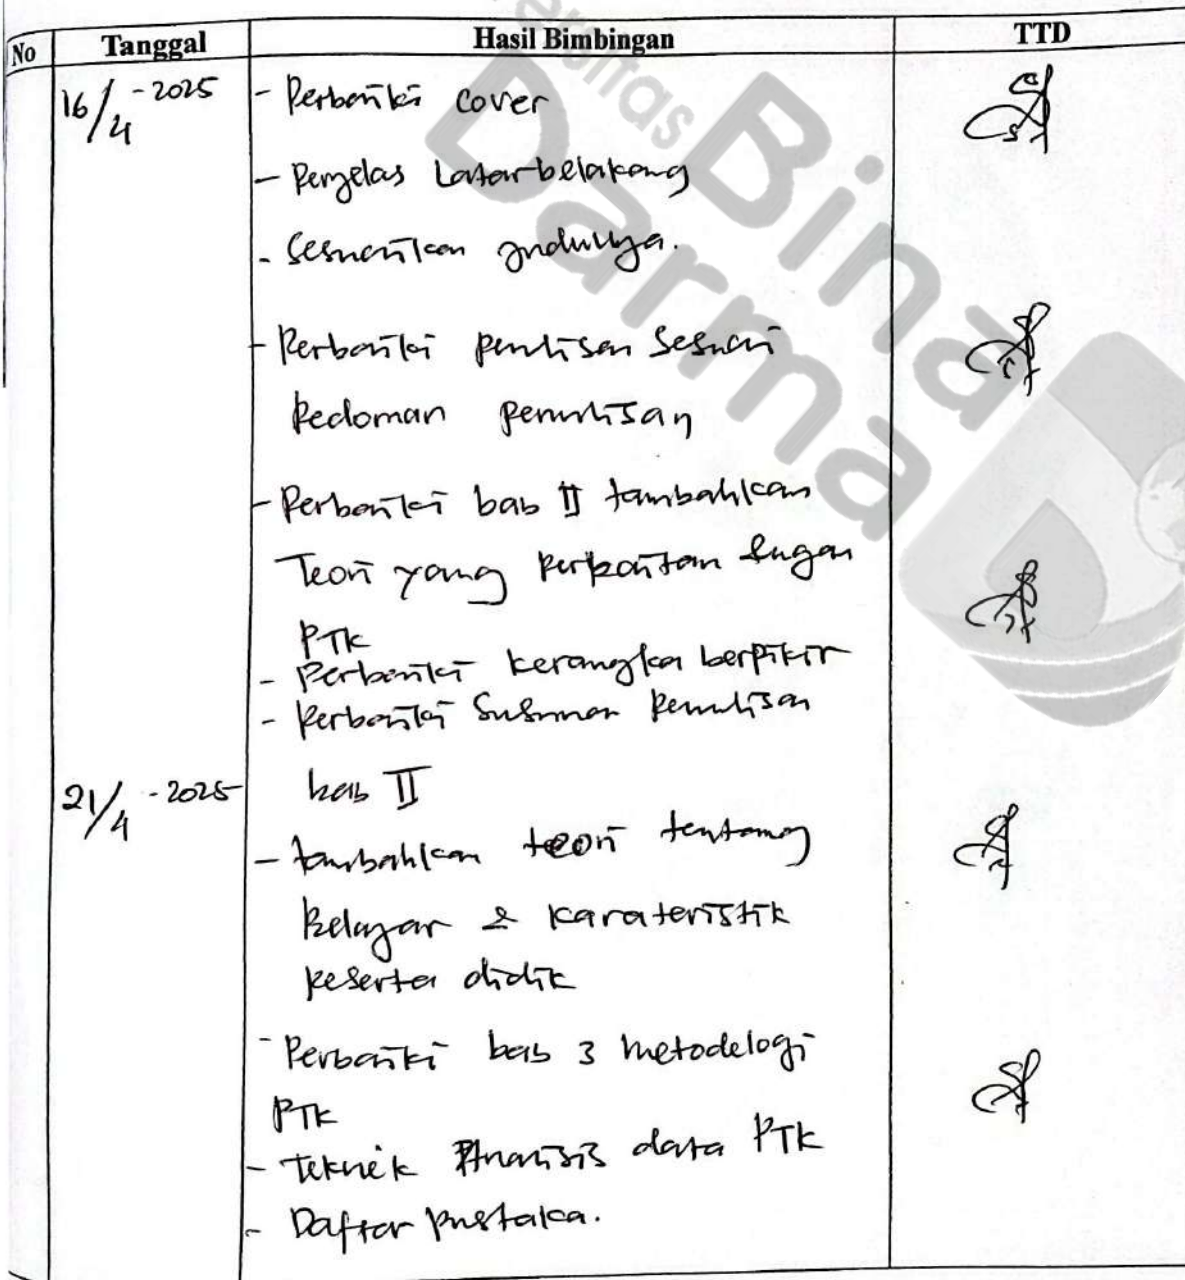 No Tanggal Hasil Bimbingan TTD
16/4 - 2025 - Perbaiki cover
- Perjelas Latarbelakang
- Sesuaikan judulnya.
- Perbaiki penulisan sesuai
Pedoman penulisan
- Perbaiki bab II tambahkan
Teori yang berkaitan dengan
PTK
- Perbaiki kerangka berpikir
- Perbaiki Susunan Penulisan
21/4 - 2025 bab II
- tambahkan teori tentang
Belajar & karateristik
peserta didik
- Perbaiki bab 3 metodelogi
PTK
- Teknik Analisis data PTK
- Daftar pustaka.
Universitas
Bina
Darma